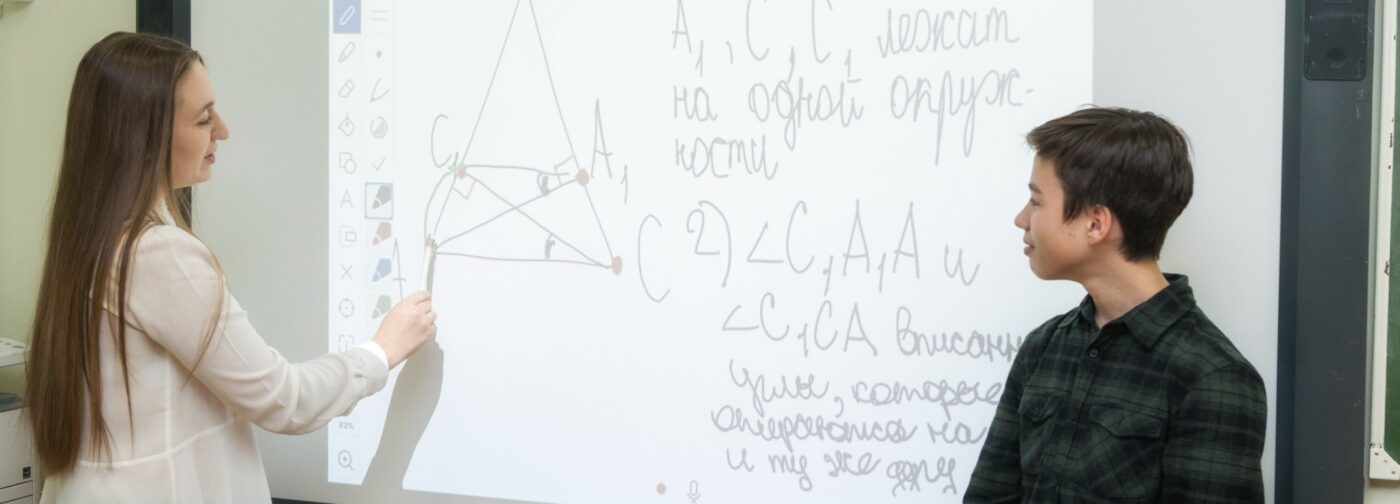 A₁, C, C₁ лежат
на одной окруж-
ности
C₁
A₁
A
C
2) ∠C₁A₁A и
∠C₁CA вписанн
углы, которые
опираются на
и ту же дугу
82%